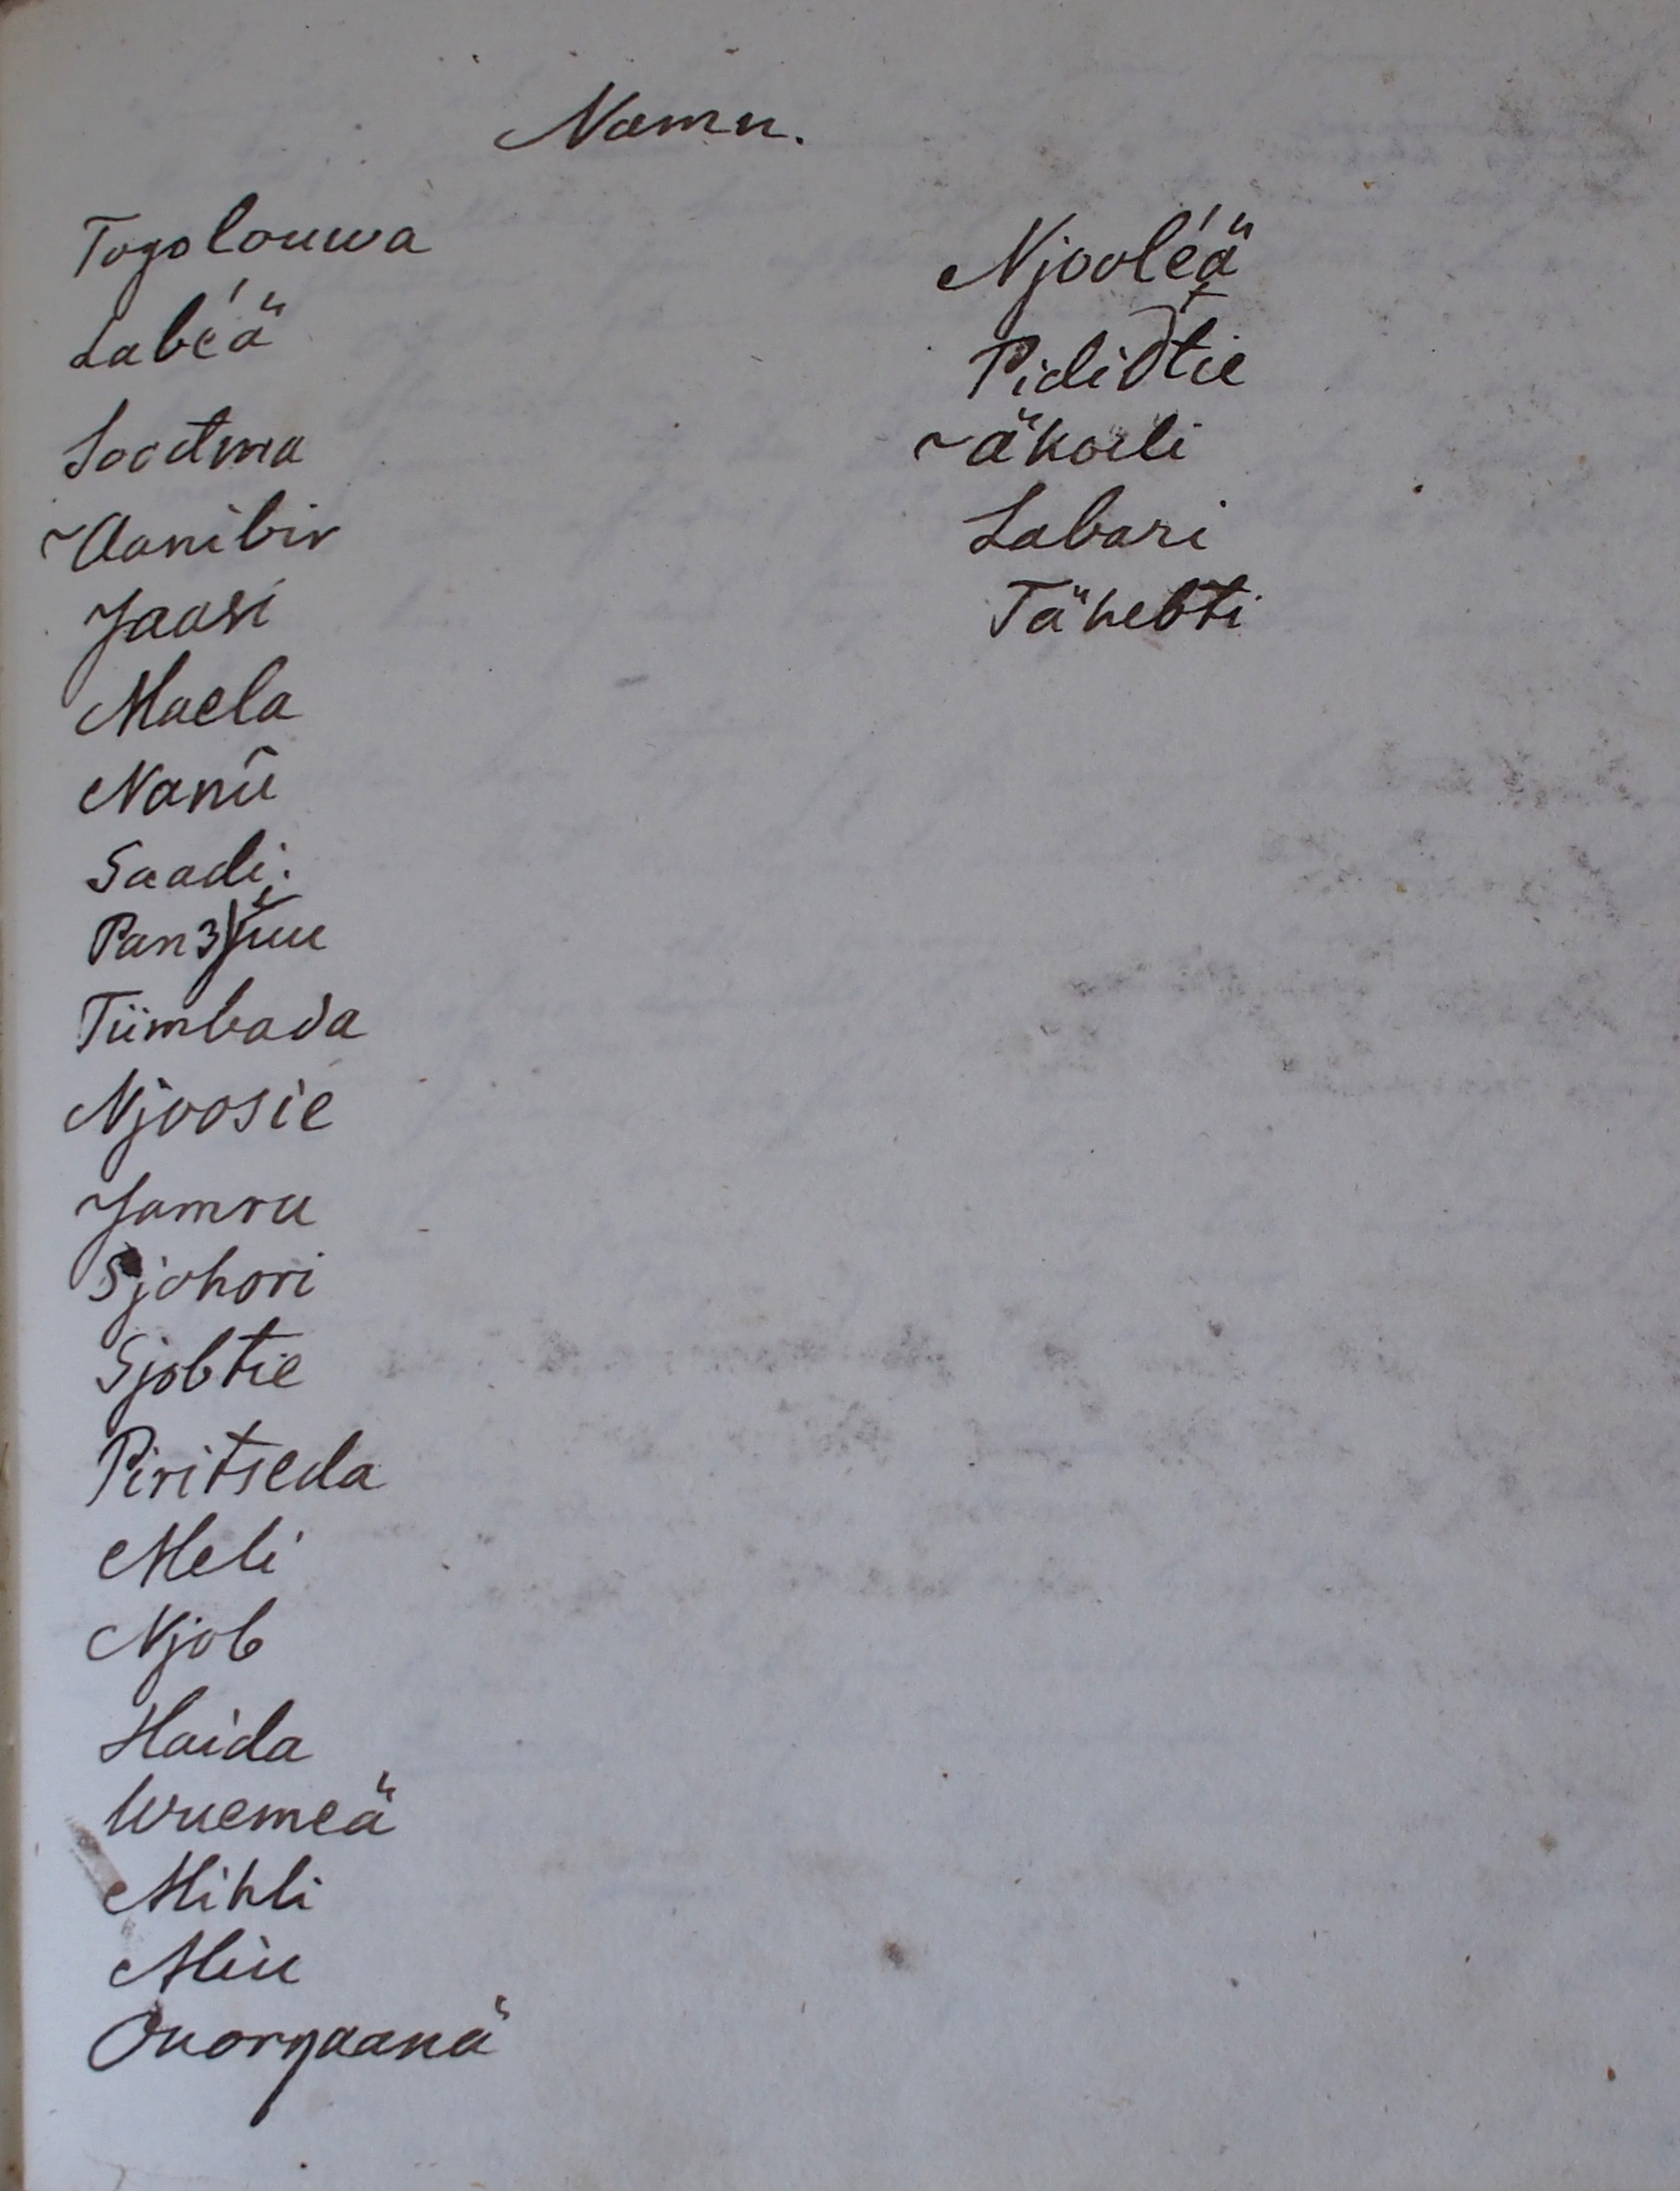 Namn.
Togolouwa
Labéä
Sootma
Aanibiv
Jaasi
Maela
Nanü
Saadi.
Tümbada
Njoosie
Jamru
Sjohori
Sjobtie
Piritseda
Meli
Njob
Haida
Wuemeä
Mihli
Miu
Ouorgaanä
Njooléä
Pididtie
Äkoeli
Labari
Tähebti